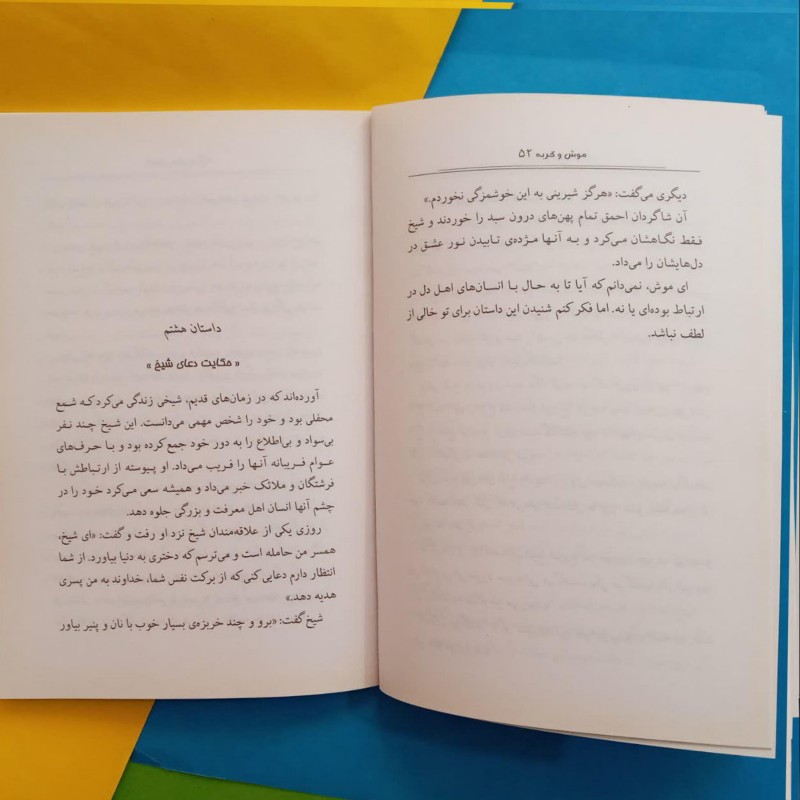 موش و گربه ۵۲
دیگری می‌گفت: «هرگز شیرینی به این خوشمزگی نخوردم.»
آن شاگردان احمق تمام پهن‌های درون سبد را خوردند و شیخ
فقط نگاهشان می‌کرد و به آنها مژده‌ی تابیدن نور عشق در
دل‌هایشان را می‌داد.
ای موش، نمی‌دانم که آیا تا به حال با انسان‌های اهل دل در
ارتباط بوده‌ای یا نه. اما فکر کنم شنیدن این داستان برای تو خالی از
لطف نباشد.
داستان هشتم
« حکایت دعای شیخ »
آورده‌اند که در زمان‌های قدیم، شیخی زندگی می‌کرد که شمع
محفلی بود و خود را شخص مهمی می‌دانست. این شیخ چند نفر
بی‌سواد و بی‌اطلاع را به دور خود جمع کرده بود و با حرف‌های
عوام فریبانه آنها را فریب می‌داد. او پیوسته از ارتباطش با
فرشتگان و ملائک خبر می‌داد و همیشه سعی می‌کرد خود را در
چشم آنها انسان اهل معرفت و بزرگی جلوه دهد.
روزی یکی از علاقه‌مندان شیخ نزد او رفت و گفت: «ای شیخ،
همسر من حامله است و می‌ترسم که دختری به دنیا بیاورد. از شما
انتظار دارم دعایی کنی که از برکت نفس شما، خداوند به من پسری
هدیه دهد.»
شیخ گفت: «برو و چند خربزه‌ی بسیار خوب با نان و پنیر بیاور